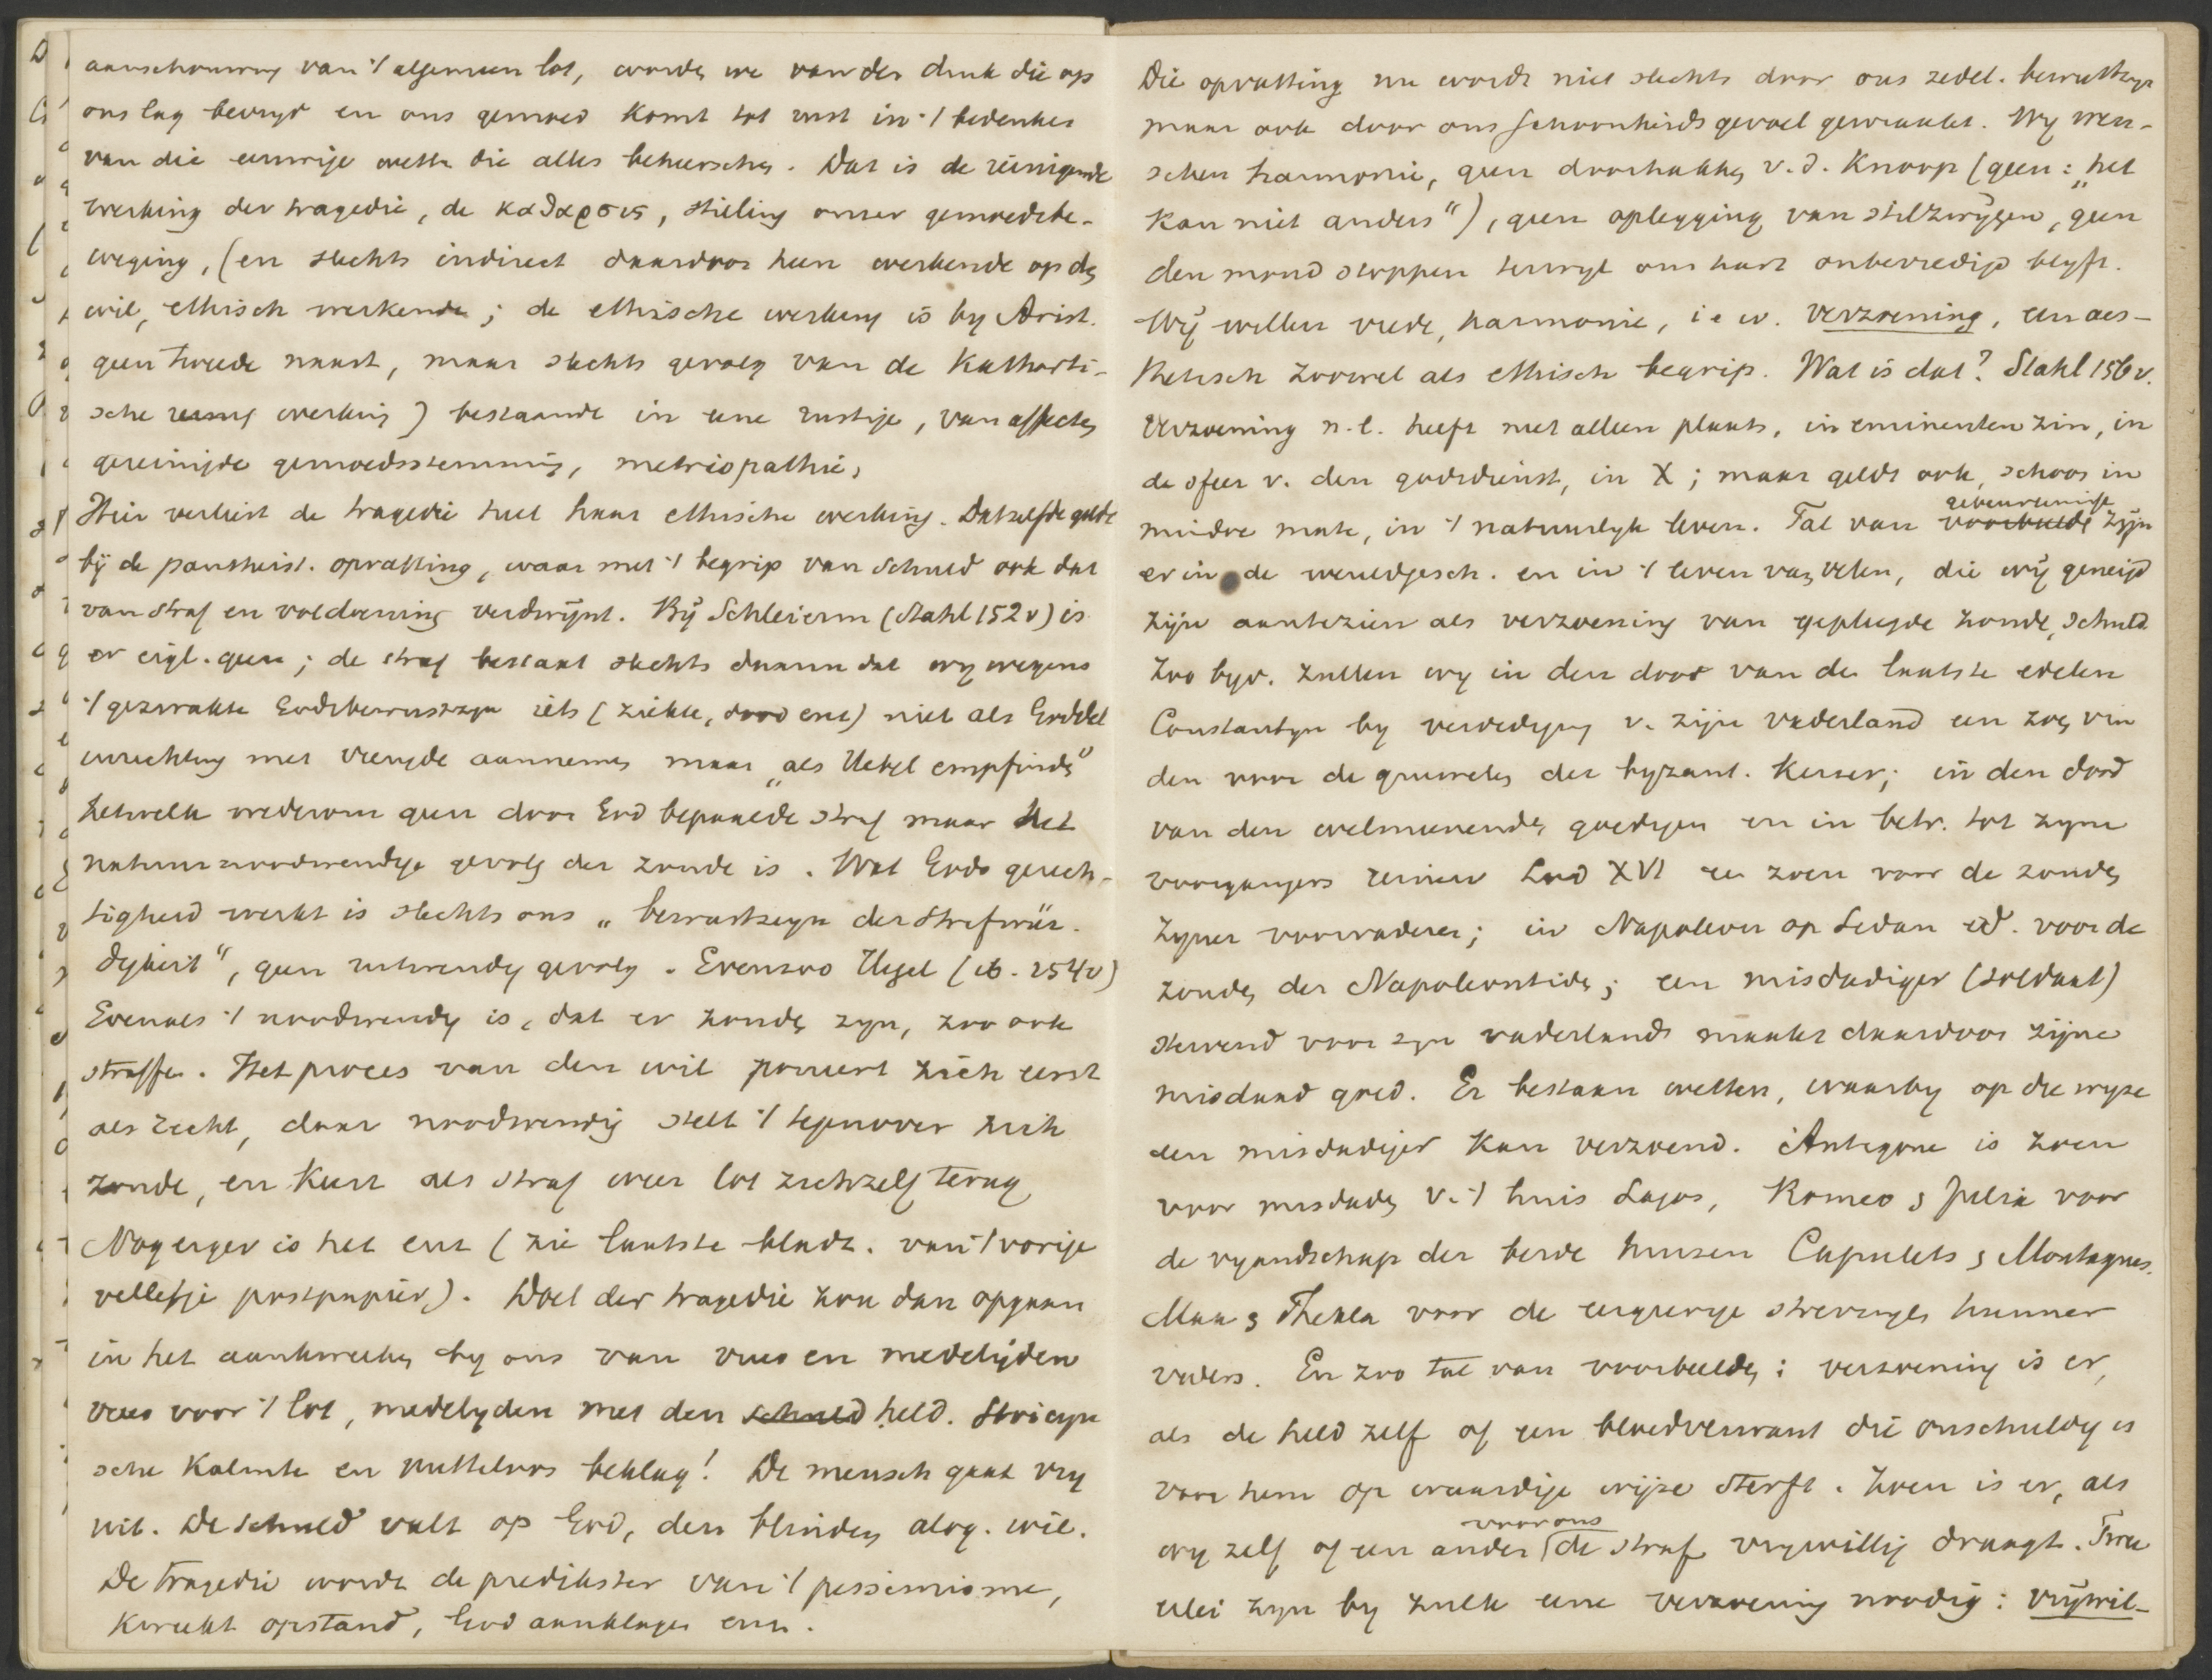 aanschouwing van 't algemeen lot, worden we van den druk die op
ons lag bevrijd en ons gemoed komt tot rust in 't bedenken
van die eeuwige wetten die alles beheerschen. Dat is de reinigende
werking der tragedie, de καθαρσις, stilling onzer gemoedsbe-
weging, (en slechts indirect daardoor heen werkende op den
wil, ethisch werkende; de ethische werking is by Arist.
geen tweede naast, maar slechts gevolg van de Katharti-
sche werking) bestaande in eene rustige, van affecten
gereinigde gemoedsstemming, metriopathie,
Hier verliest de tragedie heel haar ethische werking. Datzelfde geldt
bij de pantheist. opvatting, waar met 't begrip van schuld ook dat
van straf en voldoening verdwijnt. Bij Schleierm (Stahl 152 v) is
er eigl. geen; de straf bestaat slechts daarin dat wy wegens
't gezwakte Godsbewustzyn iets (ziekte, dood enz) niet als Godd.
inrichting met vreugde aannemen maar „als Uebel empfinden"
hetwelk wederom geen door God bepaalde straf maar het
natuurnoodwendige gevolg der zonde is. Wat Gods gerech-
tigheid werkt is slechts ons „bewustzyn der Strafwür-
digkeit", geen noodwendig gevolg. Evenzoo Hegel (ib. 154 v)
Evenals 't noodwendig is, dat er zonden zyn, zoo ook
straffen. Het proces van den wil poneert zich eerst
als recht, daar noodwendig stelt 't tegenover zich
zonde, en keert als straf weer tot zichzelf terug
Nog erger is het enz (zie laatste bladz. van 't vorige
velletje postpapier). Doel der tragedie zou dan opgaan
in het aankweeken by ons van vrees en medelijden
vrees voor 't lot, medelyden met den schuld held. Stoicyn
sche kalmte en nutteloos beklag! De mensch gaat vry
uit. De schuld valt op God, den blinden alog. wil.
De tragedie wordt de predikster van 't pessimisme,
kweekt opstand, God aanklagen enz.
Die opvatting nu wordt niet slechts door ons zedel. bewustzyn
maar ook door ons schoonheidsgevoel gewraakt. Wy wen-
schen harmonie, geen doorhakken v.d. Knoop (geen: „het
kan niet anders"), geen oplegging van stilzwijgen, geen
den mond stoppen terwyl ons hart onbevredigd blyft.
Wij willen vrede, harmonie, i e w. verzoening, een aes-
thetisch zoowel als ethisch begrip. Wat is dat? Stahl 156 v.
Verzoening n.l. heeft niet alleen plaats, in eminenten zin, in
de sfeer v. den godsdienst, in X; maar geldt ook, schoon in
mindre mate, in 't natuurlyk leven. Tal van voorbeelde gebeurtenisse zijn
er in de wereldgesch. en in 't leven van velen, die wij geneigd
zijn aantezien als verzoening van gepleegde zonde, schuld
Zoo byv. zullen wy in den dood van de laatste edelen
Constantyn by verdediging v. zijn vaderland een zoen vin
den voor de gruwelen der byzant. Keizer; in den dood
van den welmeenenden goedigen en in betr. tot zyne
voorgangers reinen Lod XVI een zoen voor de zonden
zyner voorvaderen; in Napoleon op Sedan id. voor de
zonden der Napoleontiden; een misdadiger (soldaat)
stervend voor zyn vaderland maakt daardoor zijne
misdaad goed. Er bestaan wetten, waarby op die wyze
den misdadiger kan verzoend. Antigone is zoen
voor misdaden v. 't huis Lajos, Romeo & Julia voor
de vyandschap der beide huizen Capulets & Montagues.
Max & Thekla voor de eergierige strevingen hunner
vaders. En zoo tal van voorbeelden: verzoening is er,
als de held zelf of een bloedverwant die onschuldig is
voor hem op waardige wijze sterft. Zoen is er, als
wy zelf of een ander voor ons de straf vrywillig draagt. Twee
ërlei zyn by zulk eene verzoening noodig: vrijwil-